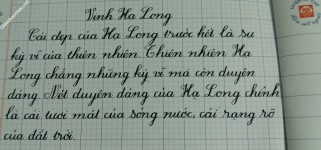 Vịnh Hạ Long
Cái đẹp của Hạ Long trước hết là sự
kỳ vĩ của thiên nhiên. Thiên nhiên Hạ
Long chẳng những kỳ vĩ mà còn duyên
dáng. Nét duyên dáng của Hạ Long chính
là cái tươi mát của sóng nước, cái rạng rỡ
của đất trời.